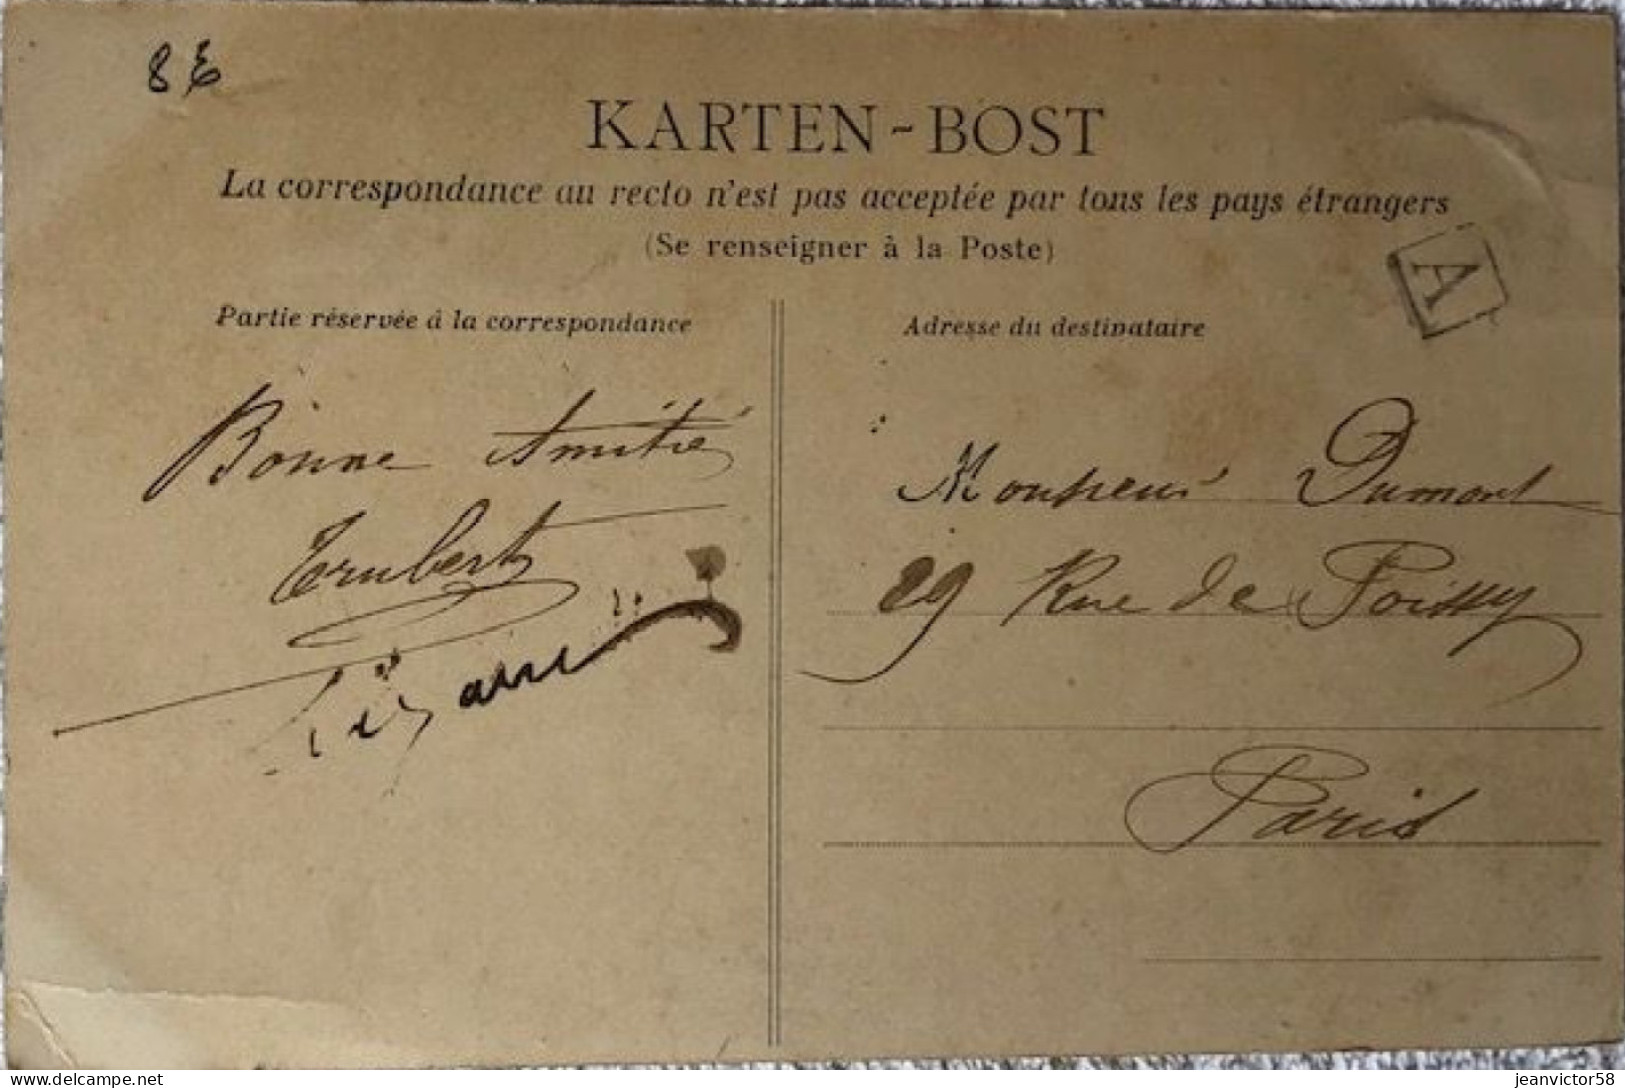 8 E
KARTEN-BOST
La correspondance au recto n'est pas acceptée par tous les pays étrangers
(Se renseigner à la Poste)
A
Partie réservée à la correspondance
Adresse du destinataire
Bonne Amitié
Trubert
Monsieur Dumont
29 Rue de Poissy
Paris
delcampe.net
jeanvictor58